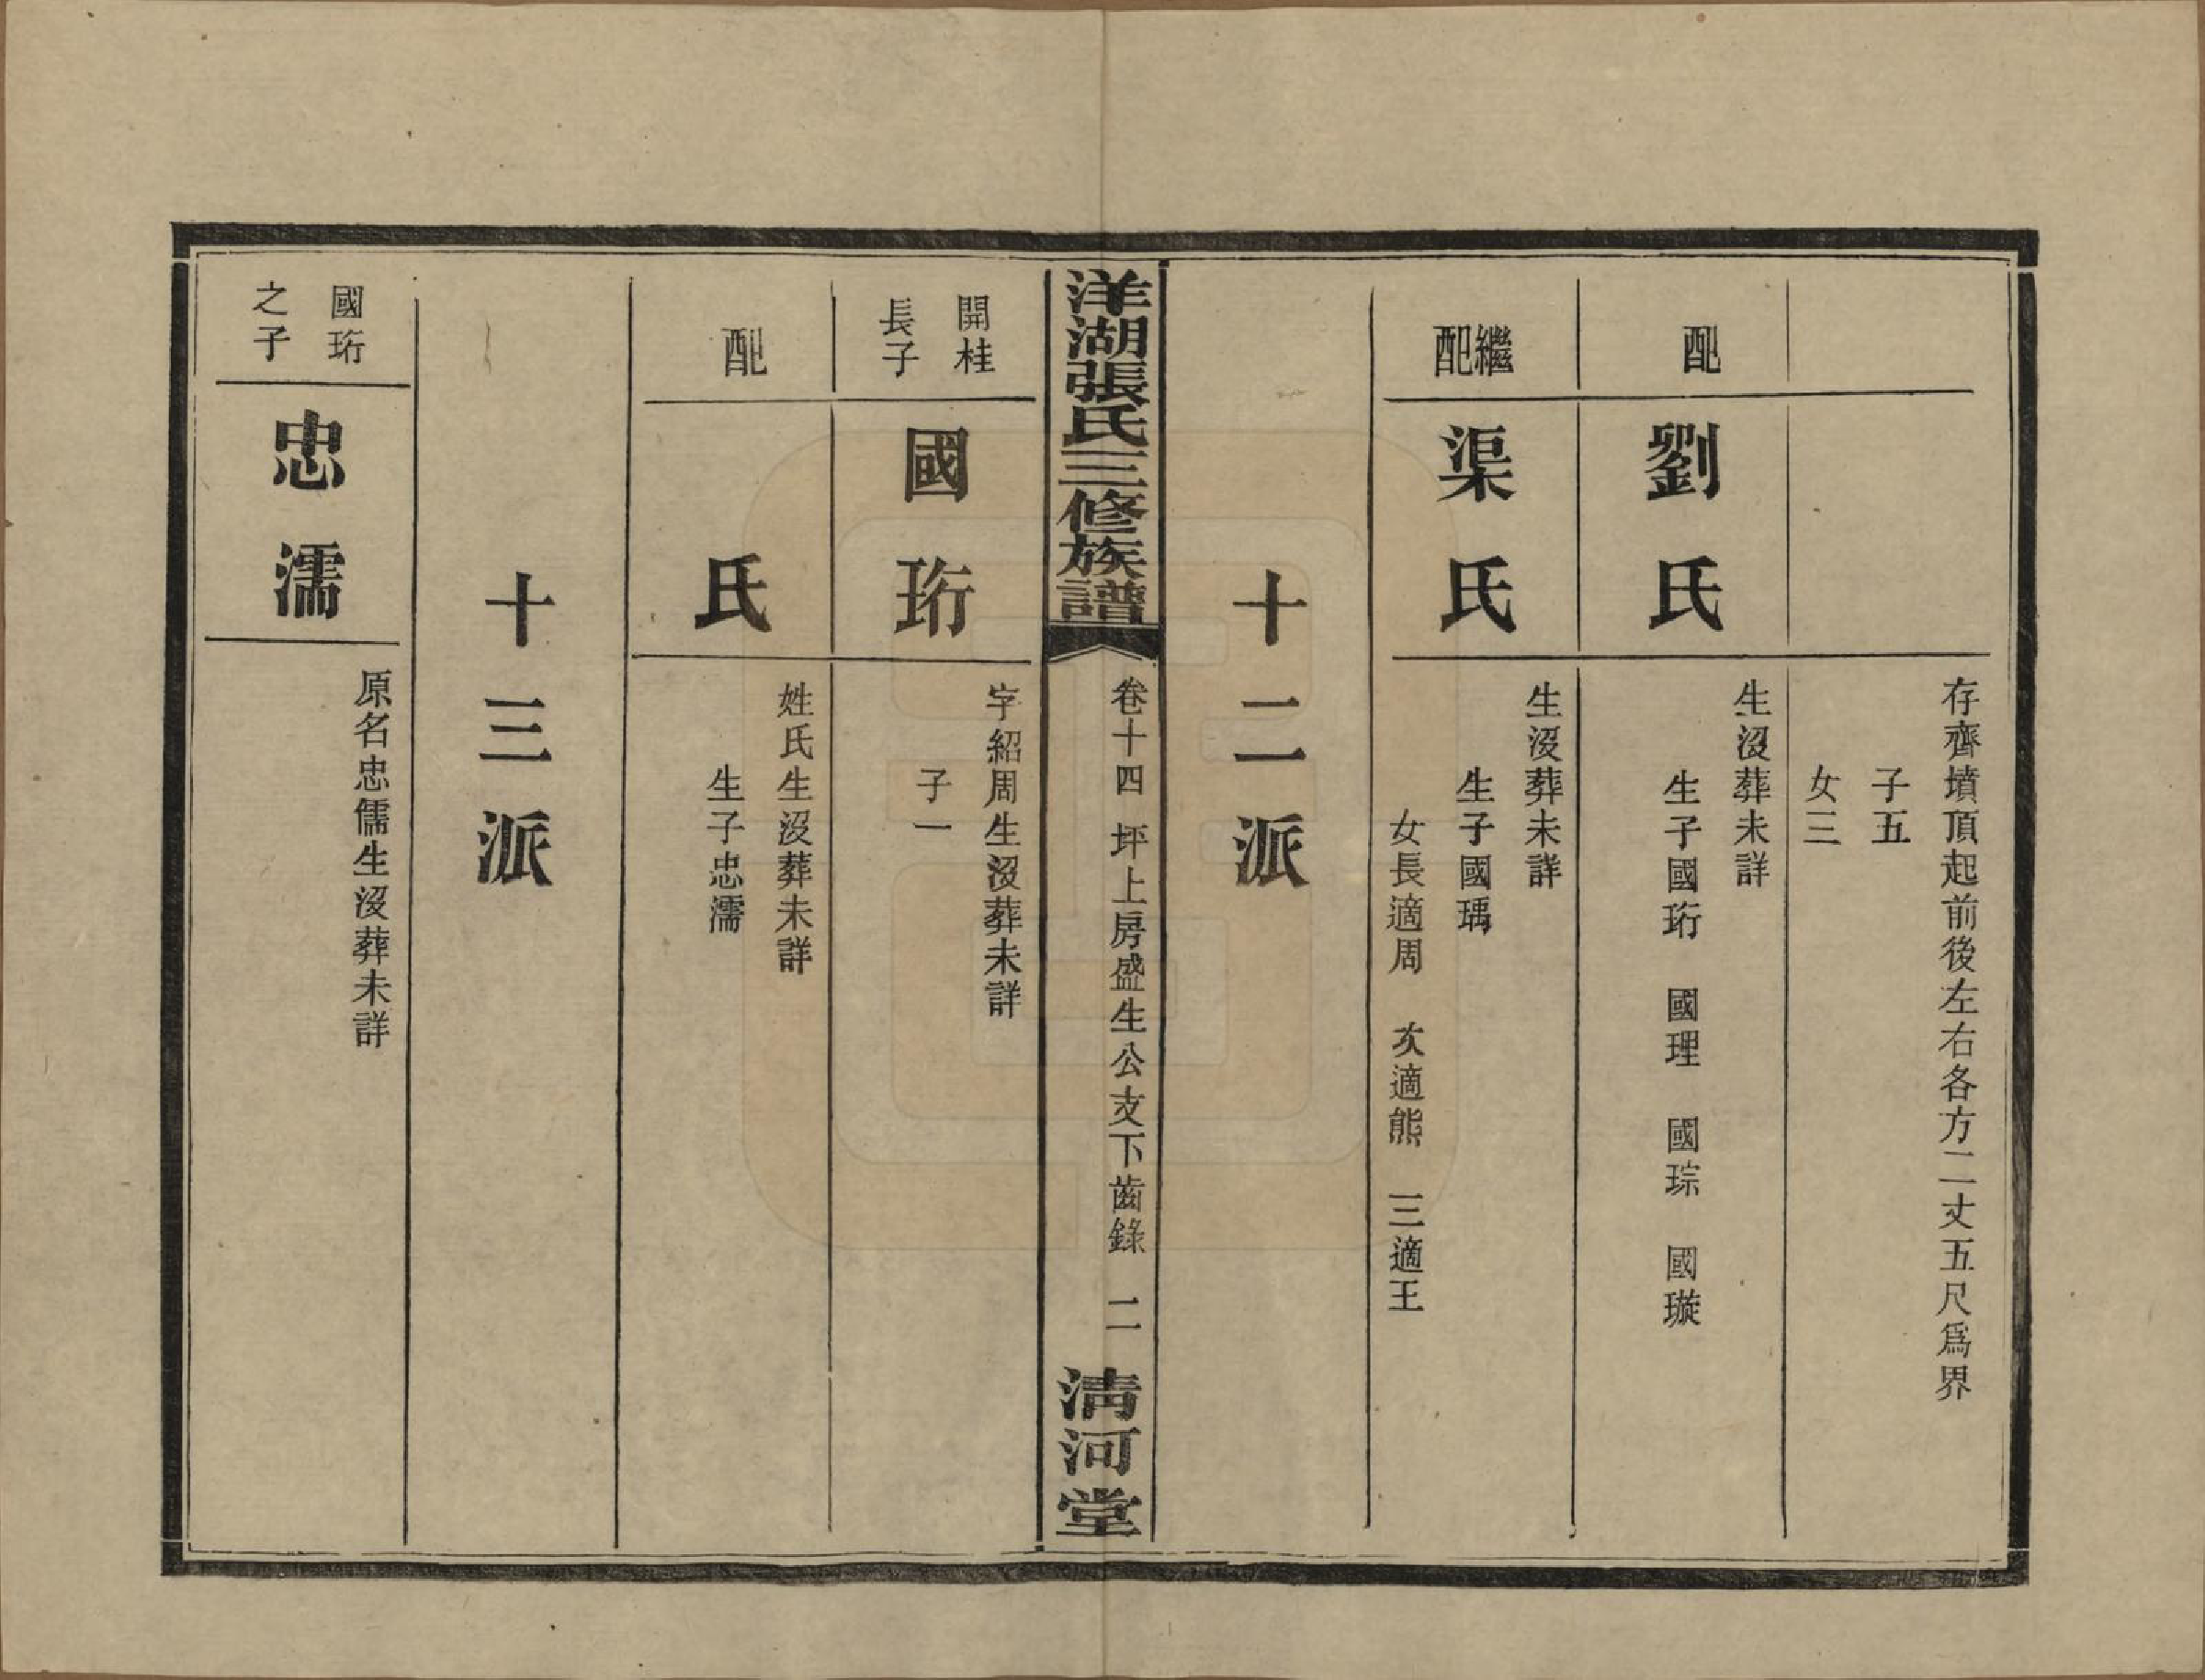 存齊墳頂起前後左右各方二丈五尺爲界
子五
女三
配
劉氏
生沒葬未詳
生子國珩　國理　國琮　國璇
繼配
渠氏
生沒葬未詳
生子國瑀
女長適周　次適熊　三適王
十二派
洋湖張氏三修族譜
卷十四　坪上房盛生公支下齒錄　二
淸河堂
開桂
長子
國珩
字紹周生沒葬未詳
子一
配
氏
姓氏生沒葬未詳
生子忠濡
十三派
國珩
之子
忠濡
原名忠儒生沒葬未詳